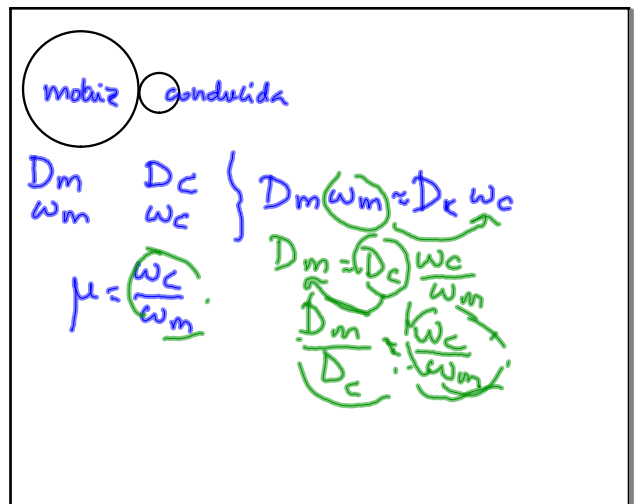 motriz conducida
Dm Dc } Dm ωm = Dc ωc
ωm ωc
Dm = Dc ωc/ωm
μ = ωc/ωm
Dm/Dc = ωc/ωm